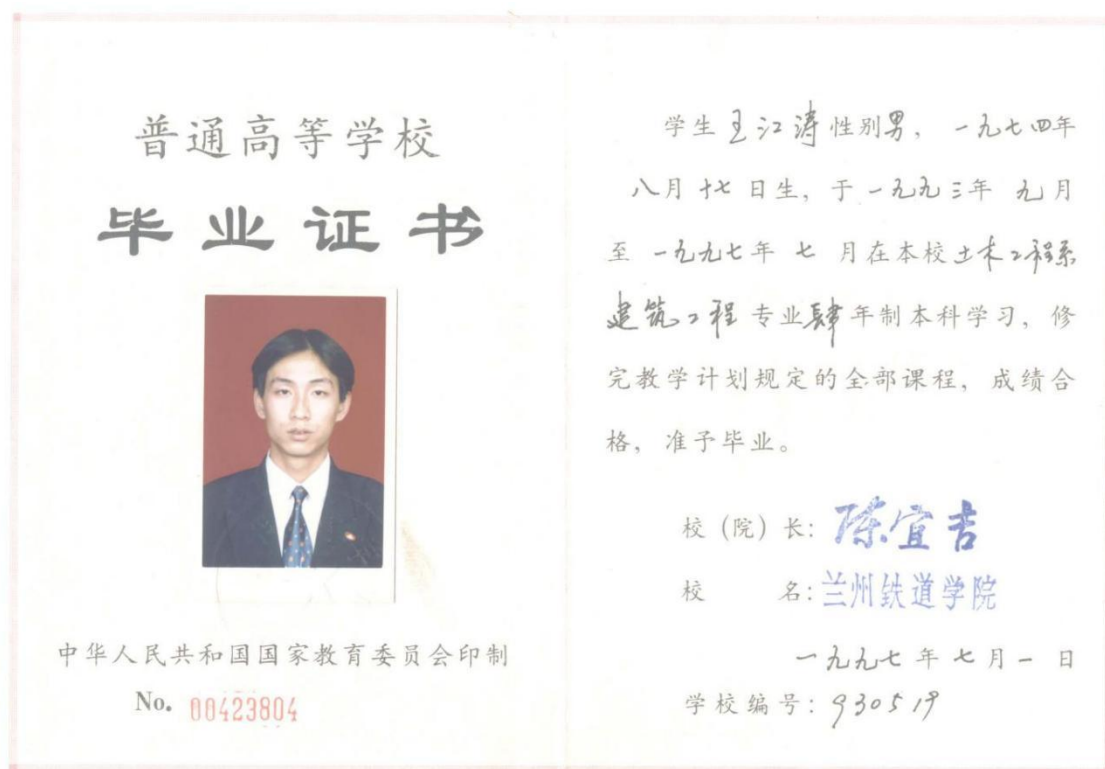 普通高等学校
毕业证书
中华人民共和国国家教育委员会印制
No. 00423804
学生王江涛性别男，一九七四年
八月十七日生，于一九九三年九月
至一九九七年七月在本校土木工程系
建筑工程专业肆年制本科学习，修
完教学计划规定的全部课程，成绩合
格，准予毕业。
校（院）长：陈宜吉
校名：兰州铁道学院
一九九七年七月一日
学校编号：930519